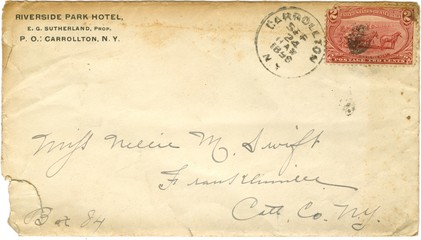 RIVERSIDE PARK HOTEL,
E. G. SUTHERLAND, PROP.
P. O.: CARROLLTON, N. Y.
CARROLLTON
SEP
24
1898
N.Y.
2 2
POSTAGE TWO CENTS
Miss Nellie M. Swift
Franklinville
Catt. Co. N.Y.
Box 84